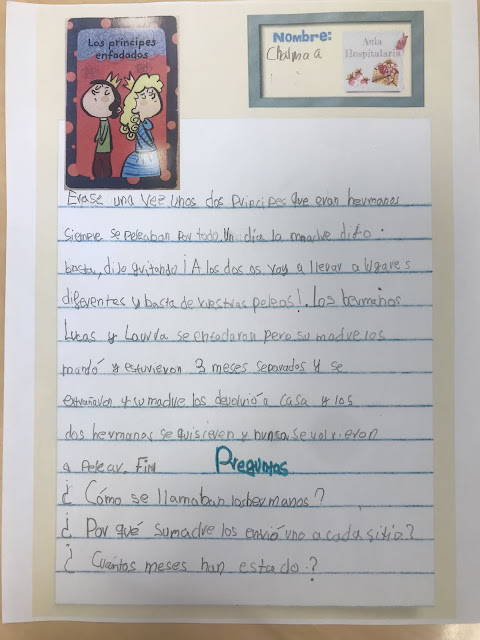 Los príncipes
enfadados
Nombre:
Chaimaa
Aula
Hospitalaria
Erase una vez unos dos principes que eran hermanos
siempre se peleaban por todo. Un día la madre dijo
basta, dijo gritando ¡A los dos os voy a llevar a lugares
diferentes y basta de vuestras peleas!. Los hermanos
Lucas y Laura se enfadaron pero su madre los
mandó y estuvieron 3 meses separados y se
extrañaron y su madre los devolvió a casa y los
dos hermanos se quisieren y nunca se volvieron
a pelear. Fin
Preguntas
¿Cómo se llamaban los hermanos?
¿Por qué su madre los envió uno a cada sitio?
¿Cuántos meses han estado?